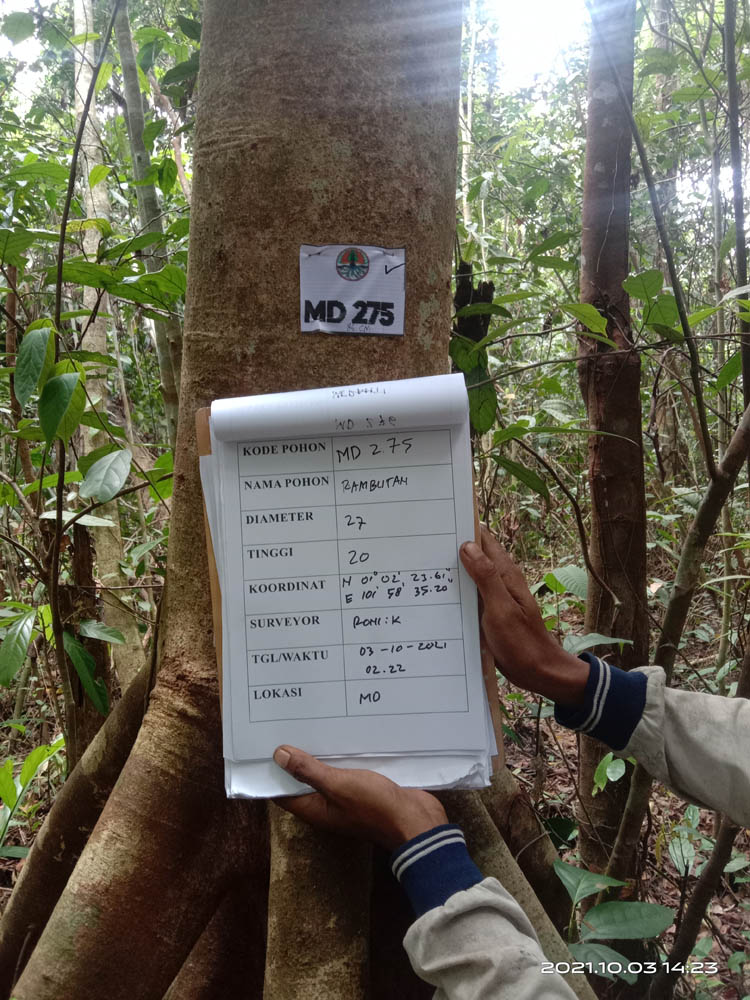 MD 275
KODE POHON MD 275
NAMA POHON RAMBUTAN
DIAMETER 27
TINGGI 20
KOORDINAT N 01° 02' 23.61"
E 101° 58' 35.20"
SURVEYOR RONI:K
TGL/WAKTU 03-10-2021
02.22
LOKASI MD
2021.10.03 14:23